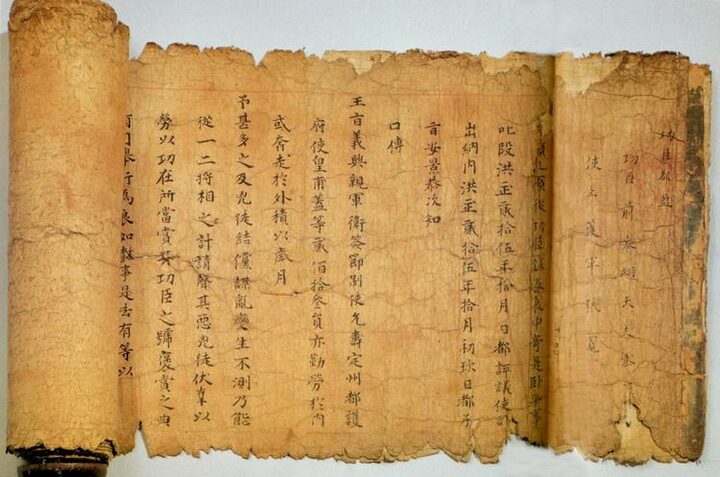 功臣都監
功臣前
使上護軍張寬
原從功臣錄券
叱段洪武貳拾伍年拾月日都評議使司
出納內洪武貳拾伍年拾月初玖日都承
旨安景恭次知
口傳
王旨義興親軍衛僉節制使尤壽定州都護
府使皇甫蓋等貳佰拾叄員亦勤勞於內
或奔走於外積以歲月
予甚多之及兇徒結儻謀亂變生不測乃能
從一二將相之計請聲其惡兇徒伏辜以
勞以功在所當賞其功臣之號褒賞之典
有司擧行爲良如敎事是去有等以